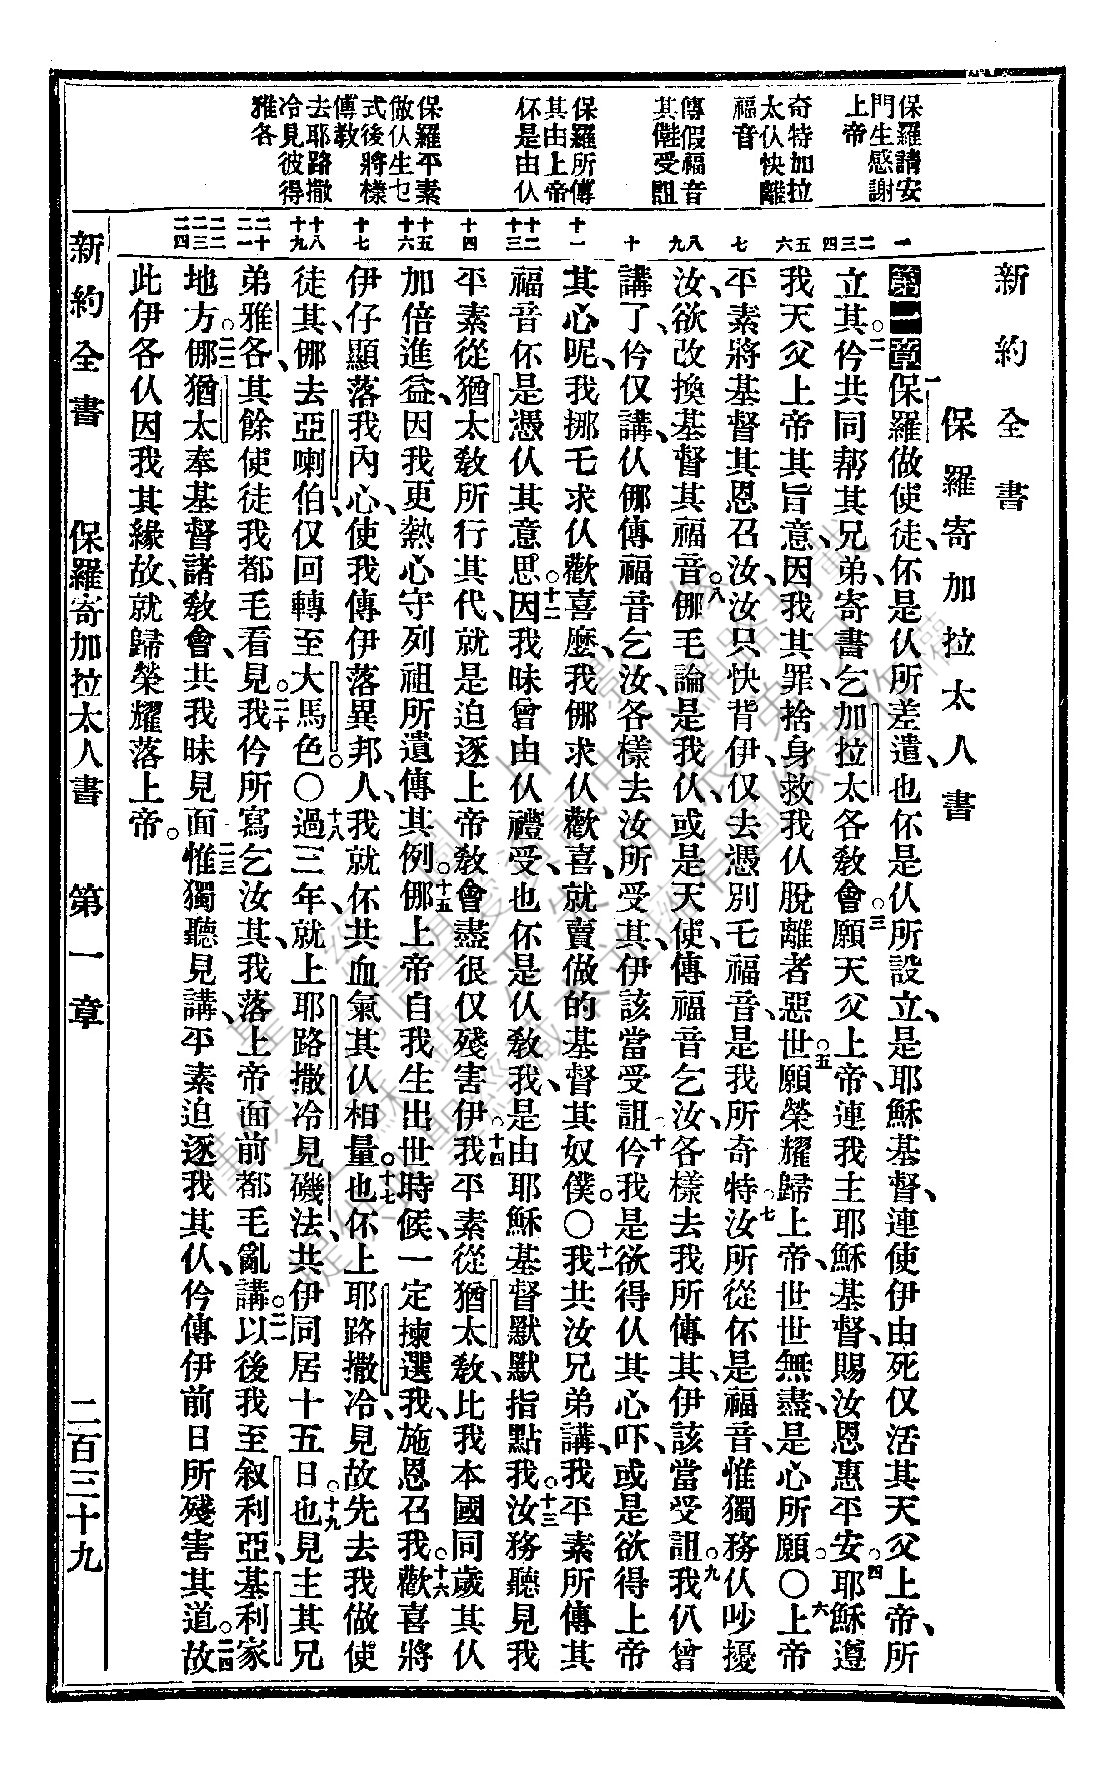 新約全書
保羅寄加拉太人書
第一章一保羅做使徒、伓是仈所差遣、也伓是仈所設立、是耶穌基督、連使伊由死仅活其天父上帝、所
立其。二仱共同帮其兄弟、寄書乞加拉太各敎會。三願天父上帝、連我主耶穌基督、賜汝恩惠平安。四耶穌遵
我天父上帝其旨意、因我其罪、捨身救我仈脫離者惡世。五願榮耀歸上帝、世世無盡、是心所願。〇六上帝
平素將基督其恩召汝、汝只快背伊、仅去憑別乇福音、是我所奇特。七汝所從伓是福音、惟獨務仈吵擾
汝、欲改換基督其福音。八倻毛論是我仈、或是天使、傳福音乞汝、各樣去我所傳其、伊該當受詛。九我仈曾
講了、仱仅講、仈倻傳福音乞汝、各樣去汝所受其、伊該當受詛。十仱我是欲得仈其心吓、或是欲得上帝
其心呢、我挪毛求仈歡喜麽、我倻求仈歡喜、就賣做的基督其奴僕。〇十一我共汝兄弟講、我平素所傳其
福音伓是憑仈其意思。十二因我昧曾由仈禮受、也伓是仈敎我、是由耶穌基督默默指點我。十三汝務聽見我
平素從猶太敎所行其代、就是迫逐上帝敎會、盡很仅殘害伊。十四我平素從猶太敎、比我本國同歲其仈
加倍進益、因我更熱心守列祖所遺傳其例。十五倻上帝自我生出世時候、一定揀選我、施恩召我。十六歡喜將
伊仔顯落我內心、使我傳伊落異邦人、我就伓共血氣其仈相量。十七也伓上耶路撒冷、見故先去我做使
徒其、倻去亞喇伯、仅回轉至大馬色。〇十八過三年、就上耶路撒冷見磯法、共伊同居十五日。十九也見主其兄
弟雅各、其餘使徒我都毛看見。二十我仱所寫乞汝其、我落上帝面前都毛亂講。二一以後我至叙利亞、基利家
地方。二二倻猶太奉基督諸敎會、共我昧見面。二三惟獨聽見講、平素迫逐我其仈、仱傳伊前日所殘害其道。二四故
此伊各仈因我其緣故、就歸榮耀落上帝。
保羅請安
門生感謝
上帝
奇特加拉
太仈快離
福音
傳假福音
其僫受詛
保羅所傳
其由上帝
伓是由仈
保羅平素
做仈生乜
式後將樣
傳敎
去耶路撒
冷見彼得
雅各
一
二
三
四
五
六
七
八
九
十
十一
十二
十三
十四
十五
十六
十七
十八
十九
二十
二一
二二
二三
二四
新約全書　保羅寄加拉太人書　第一章　二百三十九